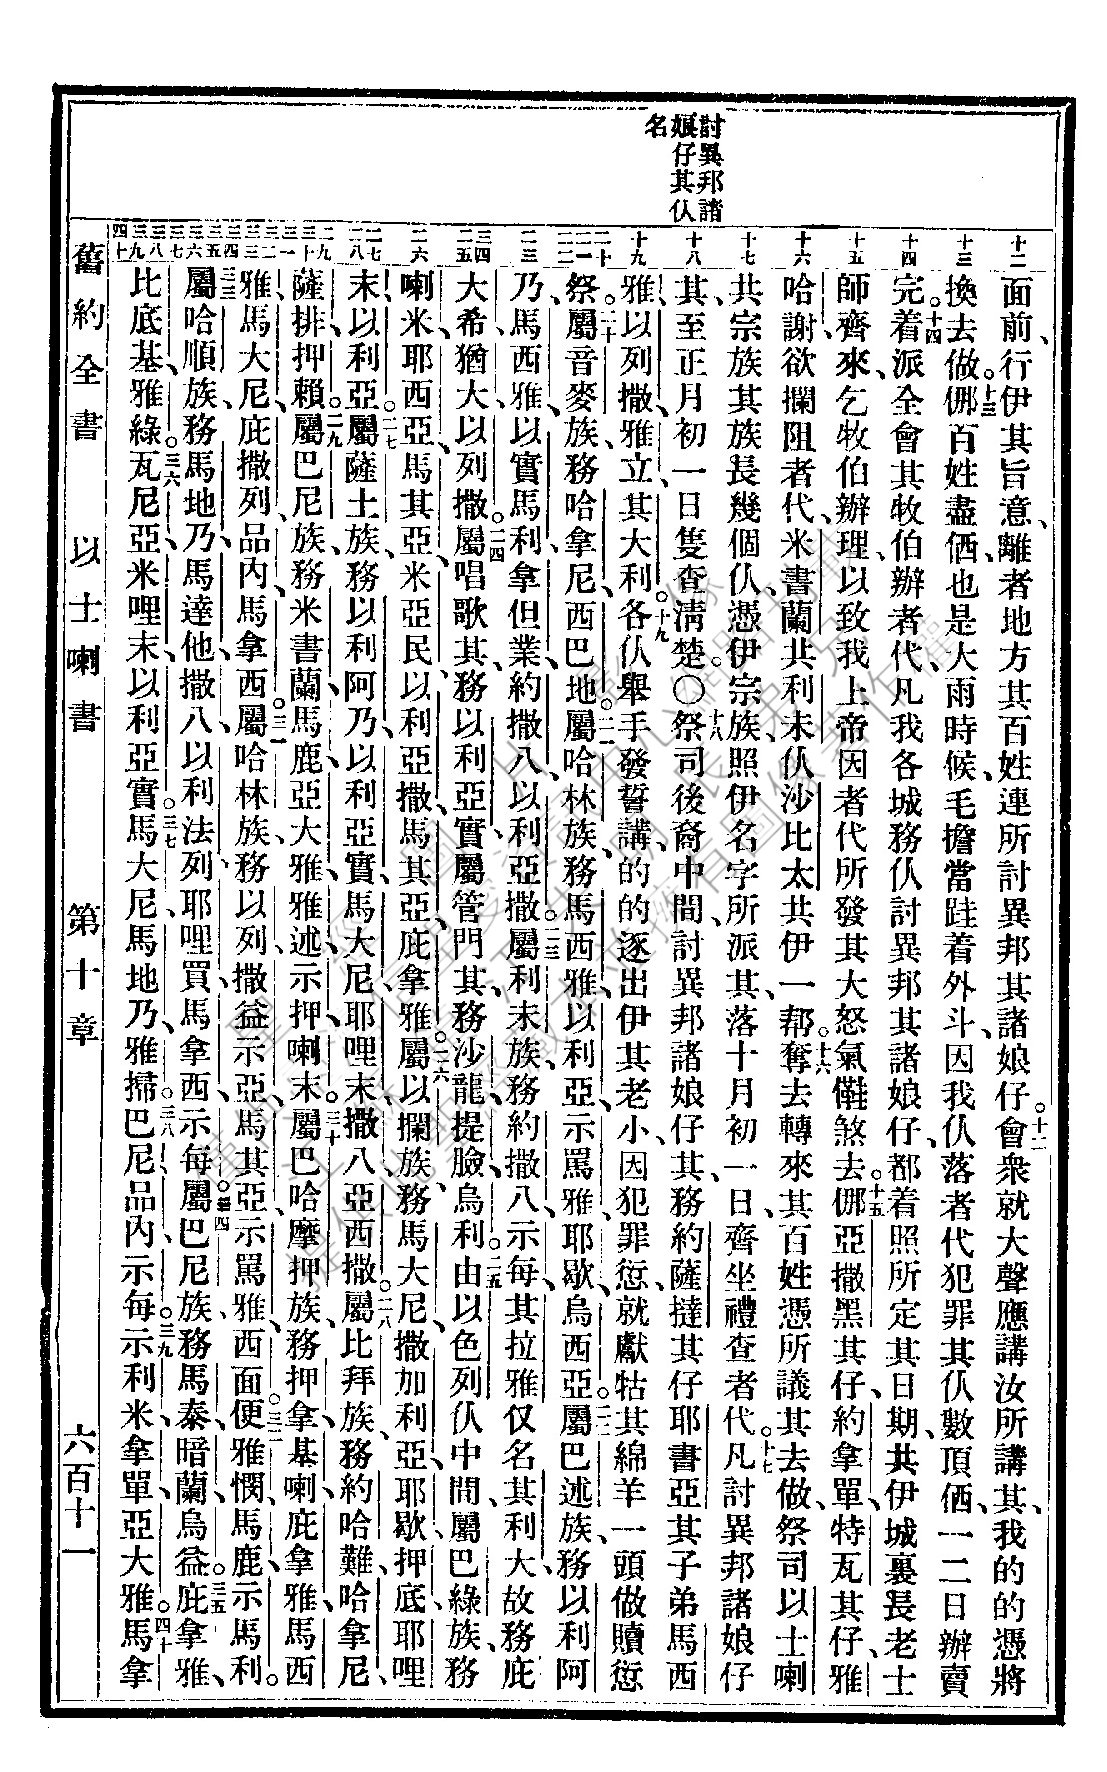 討異邦諸
娘仔其仈
名
十二
十三
十四
十五
十六
十七
十八
十九
二十
二一
二二
二三
二四
二五
二六
二七
二八
二九
三十
三一
三二
三三
三四
三五
三六
三七
三八
三九
四十
面前、行伊其旨意、離者地方其百姓、連所討異邦其諸娘仔。十二會衆就大聲應講、汝所講其、我的的憑將
換去做。十三㑚百姓盡価、也是大雨時候、毛擔當跬着外斗、因我仈落者代犯罪其仈數頂価、一二日辦賣
完。十四着派全會其牧伯辦者代、凡我各城務仈討異邦其諸娘仔、都着照所定其日期、共伊城裏長老士
師齊來、乞牧伯辦理、以致我上帝因者代所發其大怒氣、𣍐煞去。十五㑚亞撒黑其仔、約拿單、特瓦其仔、雅
哈謝、欲攔阻者代、米書蘭共利未仈沙比太共伊一帮。十六奪去轉來其百姓、憑所議其去做、祭司以士喇
共宗族其族長幾個仈、憑伊宗族、照伊名字所派其、落十月初一日、齊坐禮查者代。十七凡討異邦諸娘仔
其、至正月初一日隻查淸楚。〇十八祭司後裔中間、討異邦諸娘仔其、務約薩撻其仔耶書亞、其子弟馬西
雅、以列撒、雅立、其大利。十九各仈舉手發誓講、的的逐出伊其老小、因犯罪愆、就獻牯其綿羊一頭做贖愆
祭。二十屬音麥族、務哈拿尼、西巴地。二一屬哈林族、務馬西雅、以利亞、示罵雅、耶歇、烏西亞。二二屬巴述族、務以利阿
乃、馬西雅、以實馬利、拿但業、約撒八、以利亞撒。二三屬利未族、務約撒八、示每、其拉雅、仅名其利大、故務庇
大希、猶大、以列撒。二四屬唱歌其、務以利亞實、屬管門其、務沙龍、提臉、烏利。二五由以色列仈中間、屬巴綠族、務
喇米、耶西亞、馬其亞、米亞民、以利亞撒、馬其亞、庇拿雅。二六屬以攔族、務馬大尼、撒加利亞、耶歇、押底、耶哩
末、以利亞。二七屬薩土族、務以利阿乃、以利亞實、馬大尼、耶哩末、撒八、亞西撒。二八屬比拜族、務約哈難、哈拿尼
薩排、押賴。二九屬巴尼族、務米書蘭、馬鹿、亞大雅、雅述、示押、喇末。三十屬巴哈摩押族、務押拿、基喇、庇拿雅、馬西
雅、馬大尼、庇撒列、品內、馬拿西。三一屬哈林族、務以列撒、益示亞、馬其亞、示罵雅、西面、便雅憫、馬鹿、示馬利。
三三屬哈順族、務馬地乃、馬達他、撒八、以利法列、耶哩買、馬拿西、示每。三四屬巴尼族、務馬泰、暗蘭、烏益。三五庇拿雅、
比底、基雅綠。三六瓦尼亞、米哩末、以利亞實。三七馬大尼、馬地乃、雅掃。三八巴尼、品內、示每。三九示利米、拿單、亞大雅。四十馬拿
舊約全書 以士喇書 第十章 六百十一